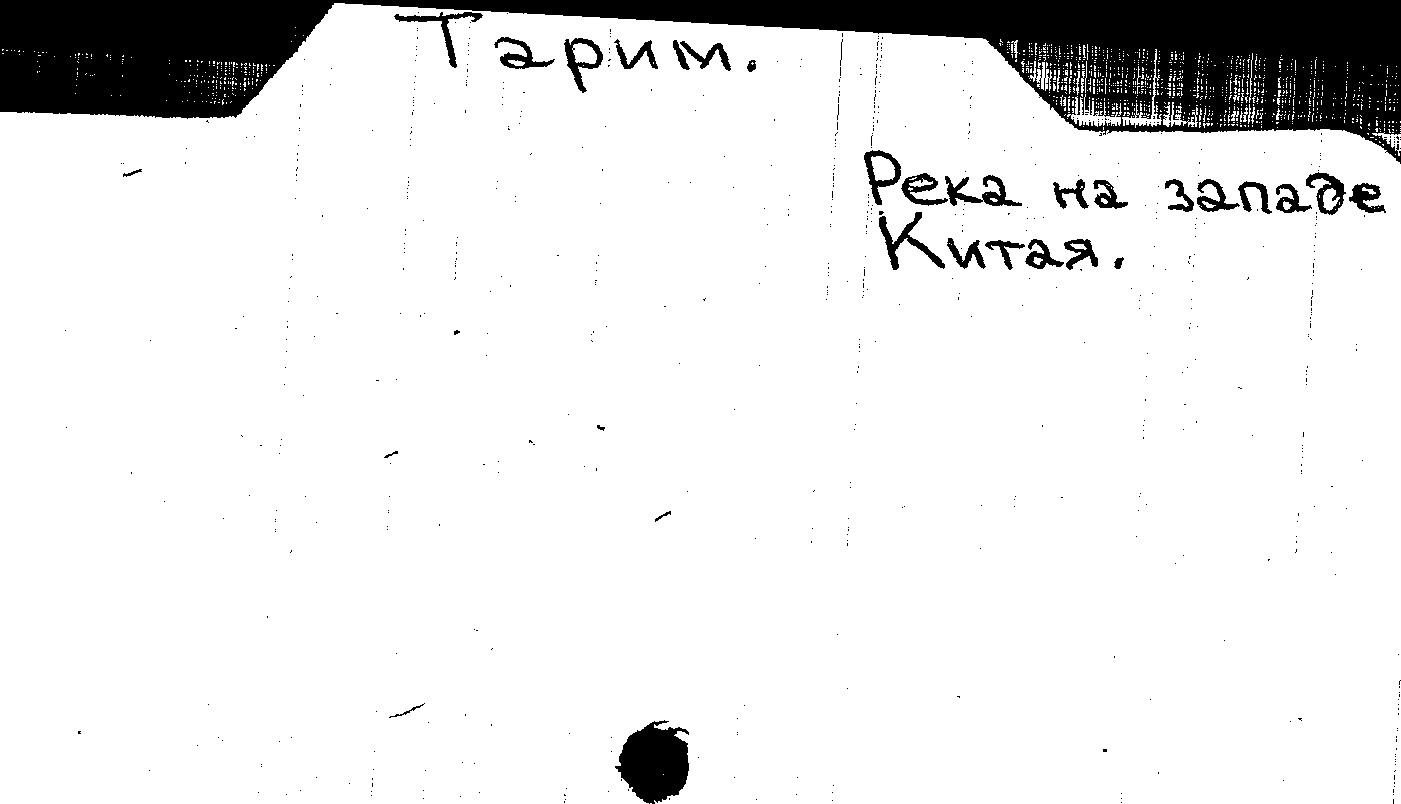 Тарим.
Река на западе
Китая.